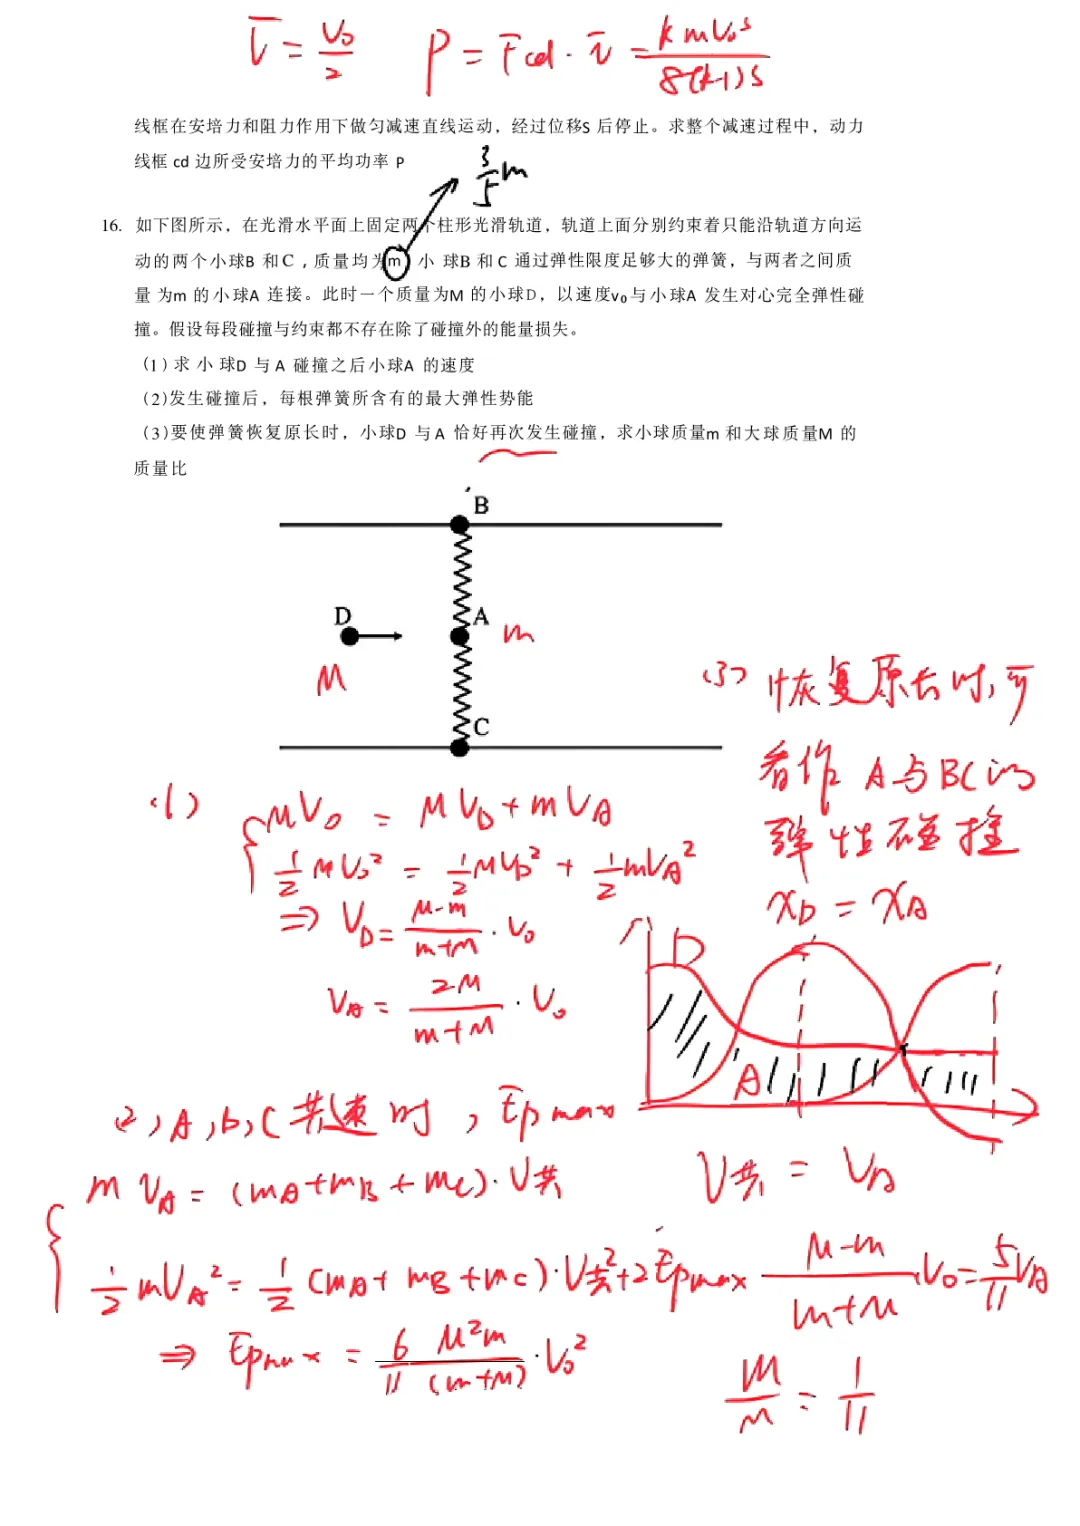 V̄ = V₀/2 P = F̄cd · v̄ = kmV₀³/8(k-1)S
线框在安培力和阻力作用下做匀减速直线运动，经过位移S 后停止。求整个减速过程中，动力
线框 cd 边所受安培力的平均功率 P
3/5 m
16. 如下图所示，在光滑水平面上固定两个柱形光滑轨道，轨道上面分别约束着只能沿轨道方向运
动的两个小球B 和C，质量均为m 小 球B 和 C 通过弹性限度足够大的弹簧，与两者之间质
量 为m 的小球A 连接。此时一个质量为M 的小球D，以速度v₀与小球A 发生对心完全弹性碰
撞。假设每段碰撞与约束都不存在除了碰撞外的能量损失。
（1）求 小 球D 与 A 碰撞之后小球A 的速度
（2)发生碰撞后，每根弹簧所含有的最大弹性势能
（3)要使弹簧恢复原长时，小球D 与 A 恰好再次发生碰撞，求小球质量m 和大球质量M 的
质量比
B
D
A m
M
C
(1) MV₀ = MV_D + mV_A
½MV₀² = ½MV_D² + ½mV_A²
⇒ V_D = (M-m)/(m+M) · V₀
V_A = 2M/(m+M) · V₀
(2) A,b,C 共速时，Epmax
mV_A = (m_A+m_B+m_C)·V共
½mV_A² = ½(m_A+m_B+m_C)·V共²+2Epmax
⇒ Epmax = 6/11 M²m/(m+M) · V₀²
(3) 恢复原长时，可
看作 A与BC的
弹性碰撞
x_D = x_A
D
A
V共 = V_D
(M-m)/(m+M) ·V₀ = 5/11 V_A
m/M = 1/11